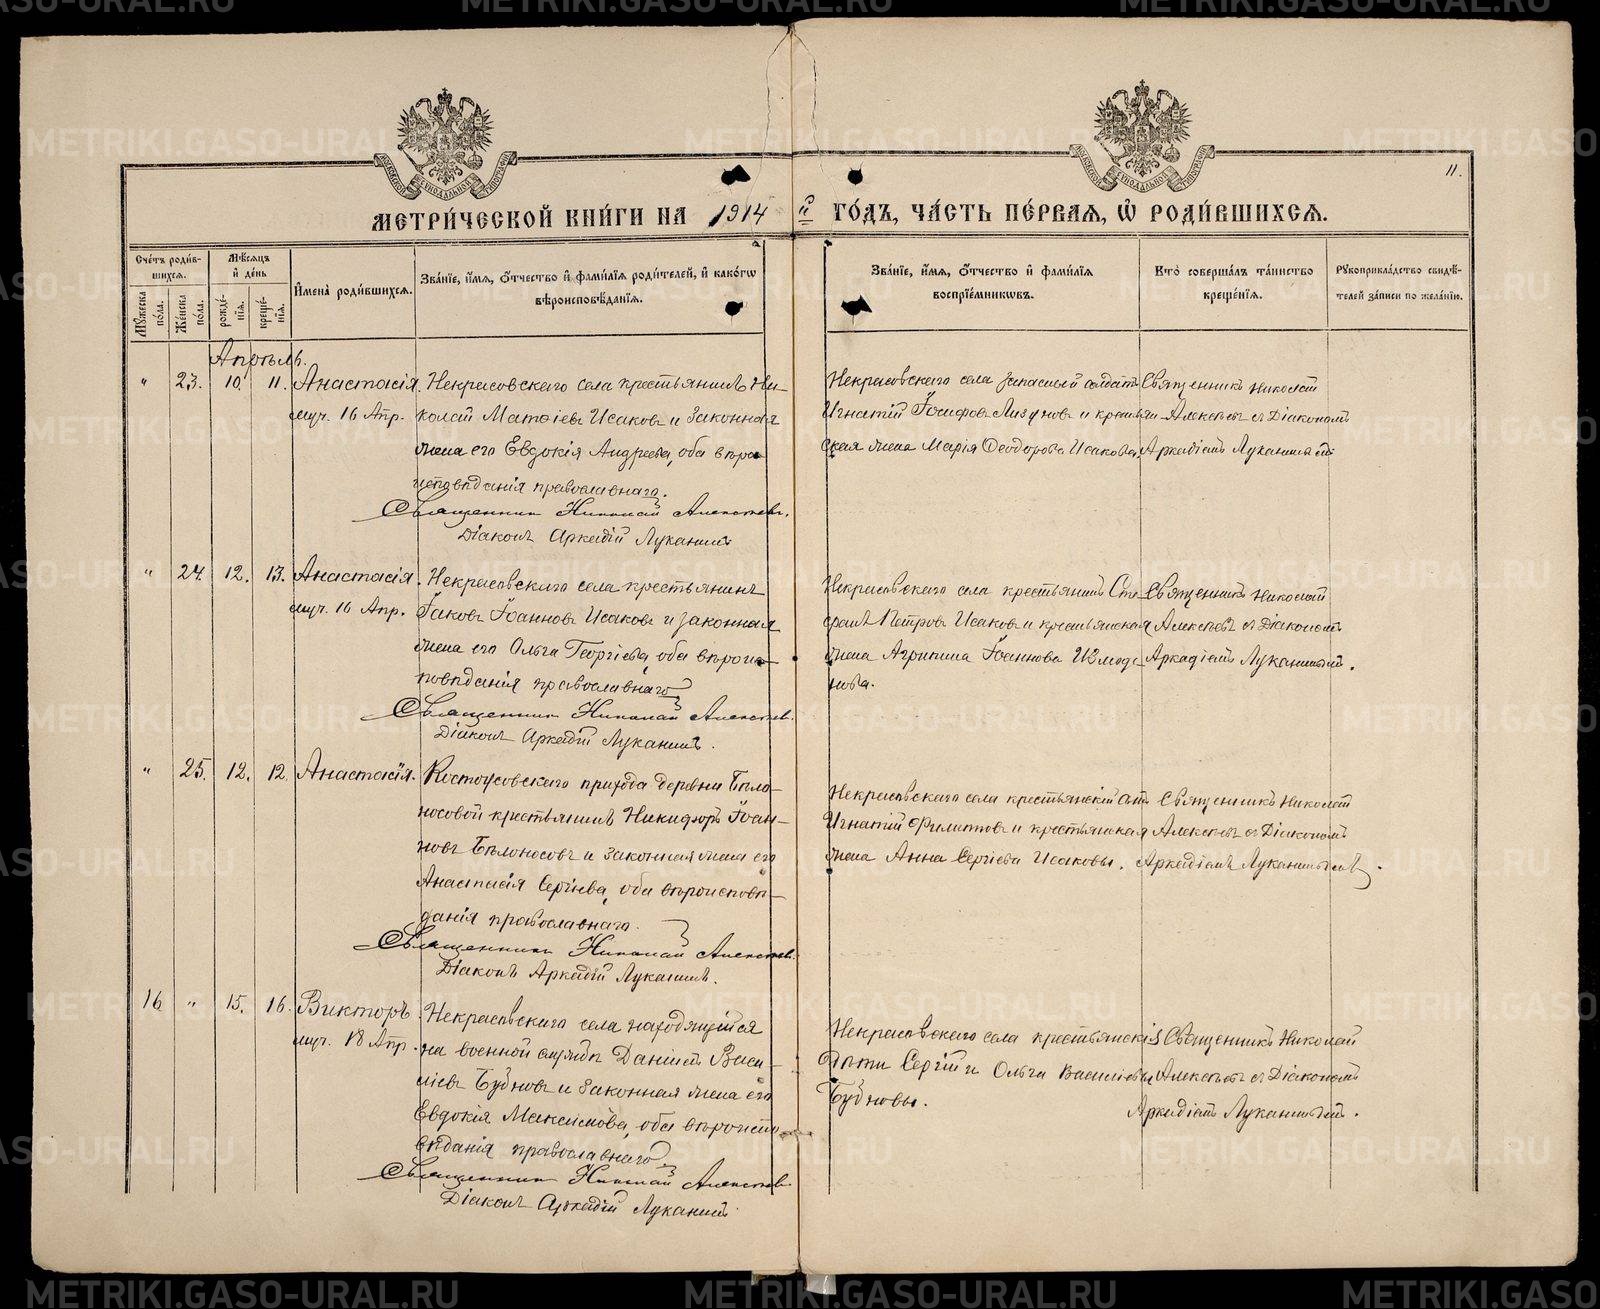 11.
МЕТРИ́ЧЕСКОЙ КНИ́ГИ НА 1914 й ГО́ДЪ, ЧА́СТЬ ПЕ́РВАЯ, Ѡ҆ РОДИ́ВШИХСЯ.
Сче́тъ роди́в-
шихся.
Му́жеска по́ла.
Же́нска по́ла.
Мѣ́сяцъ и҆ де́нь
рожде́-
нїя.
креще́-
нїя.
И҆мена̀ роди́вшихся.
Зва́нїе, и҆́мя, ѻ҆́тчество и҆ фами́лїя роди́телей, и҆ како́гѡ
вѣроисповѣ́данїя.
Зва́нїе, и҆́мя, ѻ҆́тчество и҆ фами́лїя
воспрїе́мниковъ.
Кто̀ соверша́лъ та́инство
креще́нїя.
Рꙋкоприкла́дство свидѣ́-
телей за́писи по жела́нїю.
Апрѣль.
" 23. 10. 11. Анастасія
муч. 16 Апр.
Некрасовскаго села крестьянинъ Ни-
колай Матѳіевъ Исаковъ и законная
жена его Евдокія Андреева, оба вѣро-
исповѣданія православнаго.
Священникъ Николай Алексѣевъ.
Діаконъ Аркадій Луканинъ
Некрасовскаго села запасный солдатъ
Игнатій Іосифовъ Лизуновъ и крестьян-
ская жена Марія Ѳеодорова Исакова.
Священникъ Николай
Алексѣевъ съ Діакономъ
Аркадіемъ Луканинымъ
" 24. 12. 13. Анастасія
муч. 16 Апр.
Некрасовскаго села крестьянинъ
Іаковъ Іоанновъ Исаковъ и законная
жена его Ольга Георгіева, оба вѣроис-
повѣданія православнаго
Священникъ Николай Алексѣевъ.
Діаконъ Аркадій Луканинъ.
Некрасовскаго села крестьянинъ Сте-
Петровъ Исаковъ и крестьянская
жена Агрипина Іоаннова Измоде-
нова.
Священникъ Николай
Алексѣевъ съ Діакономъ
Аркадіемъ Луканинымъ.
" 25. 12. 12. Анастасія.
Костоусовскаго прихода деревни Бѣло-
носовой крестьянинъ Никифоръ Іоан-
новъ Бѣлоносовъ и законная жена его
Анастасія Сергіева, оба вѣроисповѣ-
данія православнаго.
Священникъ Николай Алексѣевъ.
Діаконъ Аркадій Луканинъ.
Некрасовскаго села крестьянскій
Игнатій Филиповъ и крестьянская
жена Анна Сергіева Исаковы.
Священникъ Николай
Алексѣевъ съ Діакономъ
Аркадіемъ Луканинымъ.
16 " 15. 16. Викторъ
муч. 18 Апр.
Некрасовскаго села находящійся
на военной службѣ Даніилъ Васи-
ліевъ Бубновъ и законная жена его
Евдокія Максимова, оба вѣроиспо-
вѣданія православнаго
Священникъ Николай Алексѣевъ.
Діаконъ Аркадій Луканинъ
Некрасовскаго села крестьянскія
дѣти Сергій и Ольга Василіевы
Бубновы.
Священникъ Николай
Алексѣевъ съ Діакономъ
Аркадіемъ Луканинымъ.
METRIKI.GASO-URAL.RU